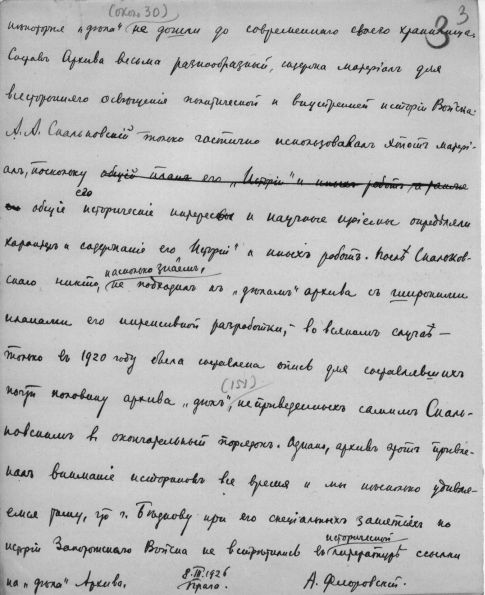 (окол. 30)
3
3
некоторыя „дѣла" не дошли до современнаго своего хранилища.
Составъ Архива весьма разнообразный, содержа матеріалъ для
всесторонняго освѣщенія политической и внутренней исторіи Войска.
А. А. Скальковскій только частично использовалъ этотъ матері-
алъ, поскольку общій планъ его „Исторіи" и иныхъ работъ, а равно
его
общіе историческіе интересы и научные пріемы опредѣляли
характеръ и содержаніе его „Исторіи" и иныхъ работъ. Послѣ Скальков-
скаго никто, насколько знаемъ,
не подходилъ къ „дѣламъ" архива съ широкими
планами его интенсивной разработки, – во всякомъ случаѣ –
только въ 1920 году была составлена опись для составлявшихъ
(151)
почти половину архива „дѣлъ", не приведенныхъ самимъ Скаль-
ковскимъ въ окончательный порядокъ. Однако, архивъ этотъ привле-
калъ вниманіе историковъ все время и мы нѣсколько удивля-
емся тому, что г. Бѣднову при его спеціальныхъ занятіяхъ по
исторіи Запорожскаго Войска не встрѣтились въ исторической литературѣ ссылки
на „дѣла" Архива.
8.III.1926
Прага.
А. Флоровскій.